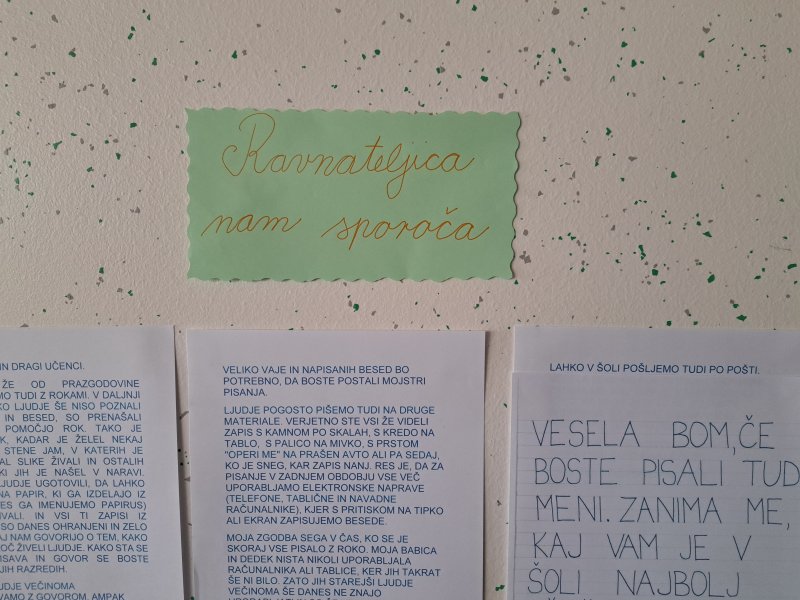 Ravnateljica
nam sporoča
IN DRAGI UČENCI.
ŽE OD PRAZGODOVINE
MO TUDI Z ROKAMI. V DALJNJI
KO LJUDJE ŠE NISO POZNALI
IN BESED, SO PRENAŠALI
POMOČJO ROK. TAKO JE
K, KADAR JE ŽELEL NEKAJ
STENE JAM, V KATERIH JE
AL SLIKE ŽIVALI IN OSTALIH
KI JIH JE NAŠEL V NARAVI.
LJUDJE UGOTOVILI, DA LAHKO
NA PAPIR, KI GA IZDELAJO IZ
ES GA IMENUJEMO PAPIRUS)
VALI. IN VSI TI ZAPISI IZ
SO DANES OHRANJENI IN ZELO
AJ NAM GOVORIJO O TEM, KAKO
OČ ŽIVELI LJUDJE. KAKO STA SE
PISAVA IN GOVOR SE BOSTE
JIH RAZREDIH.
UDJE VEČINOMA
VAMO Z GOVOROM, AMPAK
VELIKO VAJE IN NAPISANIH BESED BO
POTREBNO, DA BOSTE POSTALI MOJSTRI
PISANJA.
LJUDJE POGOSTO PIŠEMO TUDI NA DRUGE
MATERIALE. VERJETNO STE VSI ŽE VIDELI
ZAPIS S KAMNOM PO SKALAH, S KREDO NA
TABLO, S PALICO NA MIVKO, S PRSTOM
"OPERI ME" NA PRAŠEN AVTO ALI PA SEDAJ,
KO JE SNEG, KAR ZAPIS NANJ. RES JE, DA ZA
PISANJE V ZADNJEM OBDOBJU VSE VEČ
UPORABLJAMO ELEKTRONSKE NAPRAVE
(TELEFONE, TABLIČNE IN NAVADNE
RAČUNALNIKE), KJER S PRITISKOM NA TIPKO
ALI EKRAN ZAPISUJEMO BESEDE.
MOJA ZGODBA SEGA V ČAS, KO SE JE
SKORAJ VSE PISALO Z ROKO. MOJA BABICA
IN DEDEK NISTA NIKOLI UPORABLJALA
RAČUNALNIKA ALI TABLICE, KER JIH TAKRAT
ŠE NI BILO. ZATO JIH STAREJŠI LJUDJE
VEČINOMA ŠE DANES NE ZNAJO
LAHKO V ŠOLI POŠLJEMO TUDI PO POŠTI.
VESELA BOM, ČE
BOSTE PISALI TUD
MENI. ZANIMA ME,
KAJ VAM JE V
ŠOLI NAJBOLJ